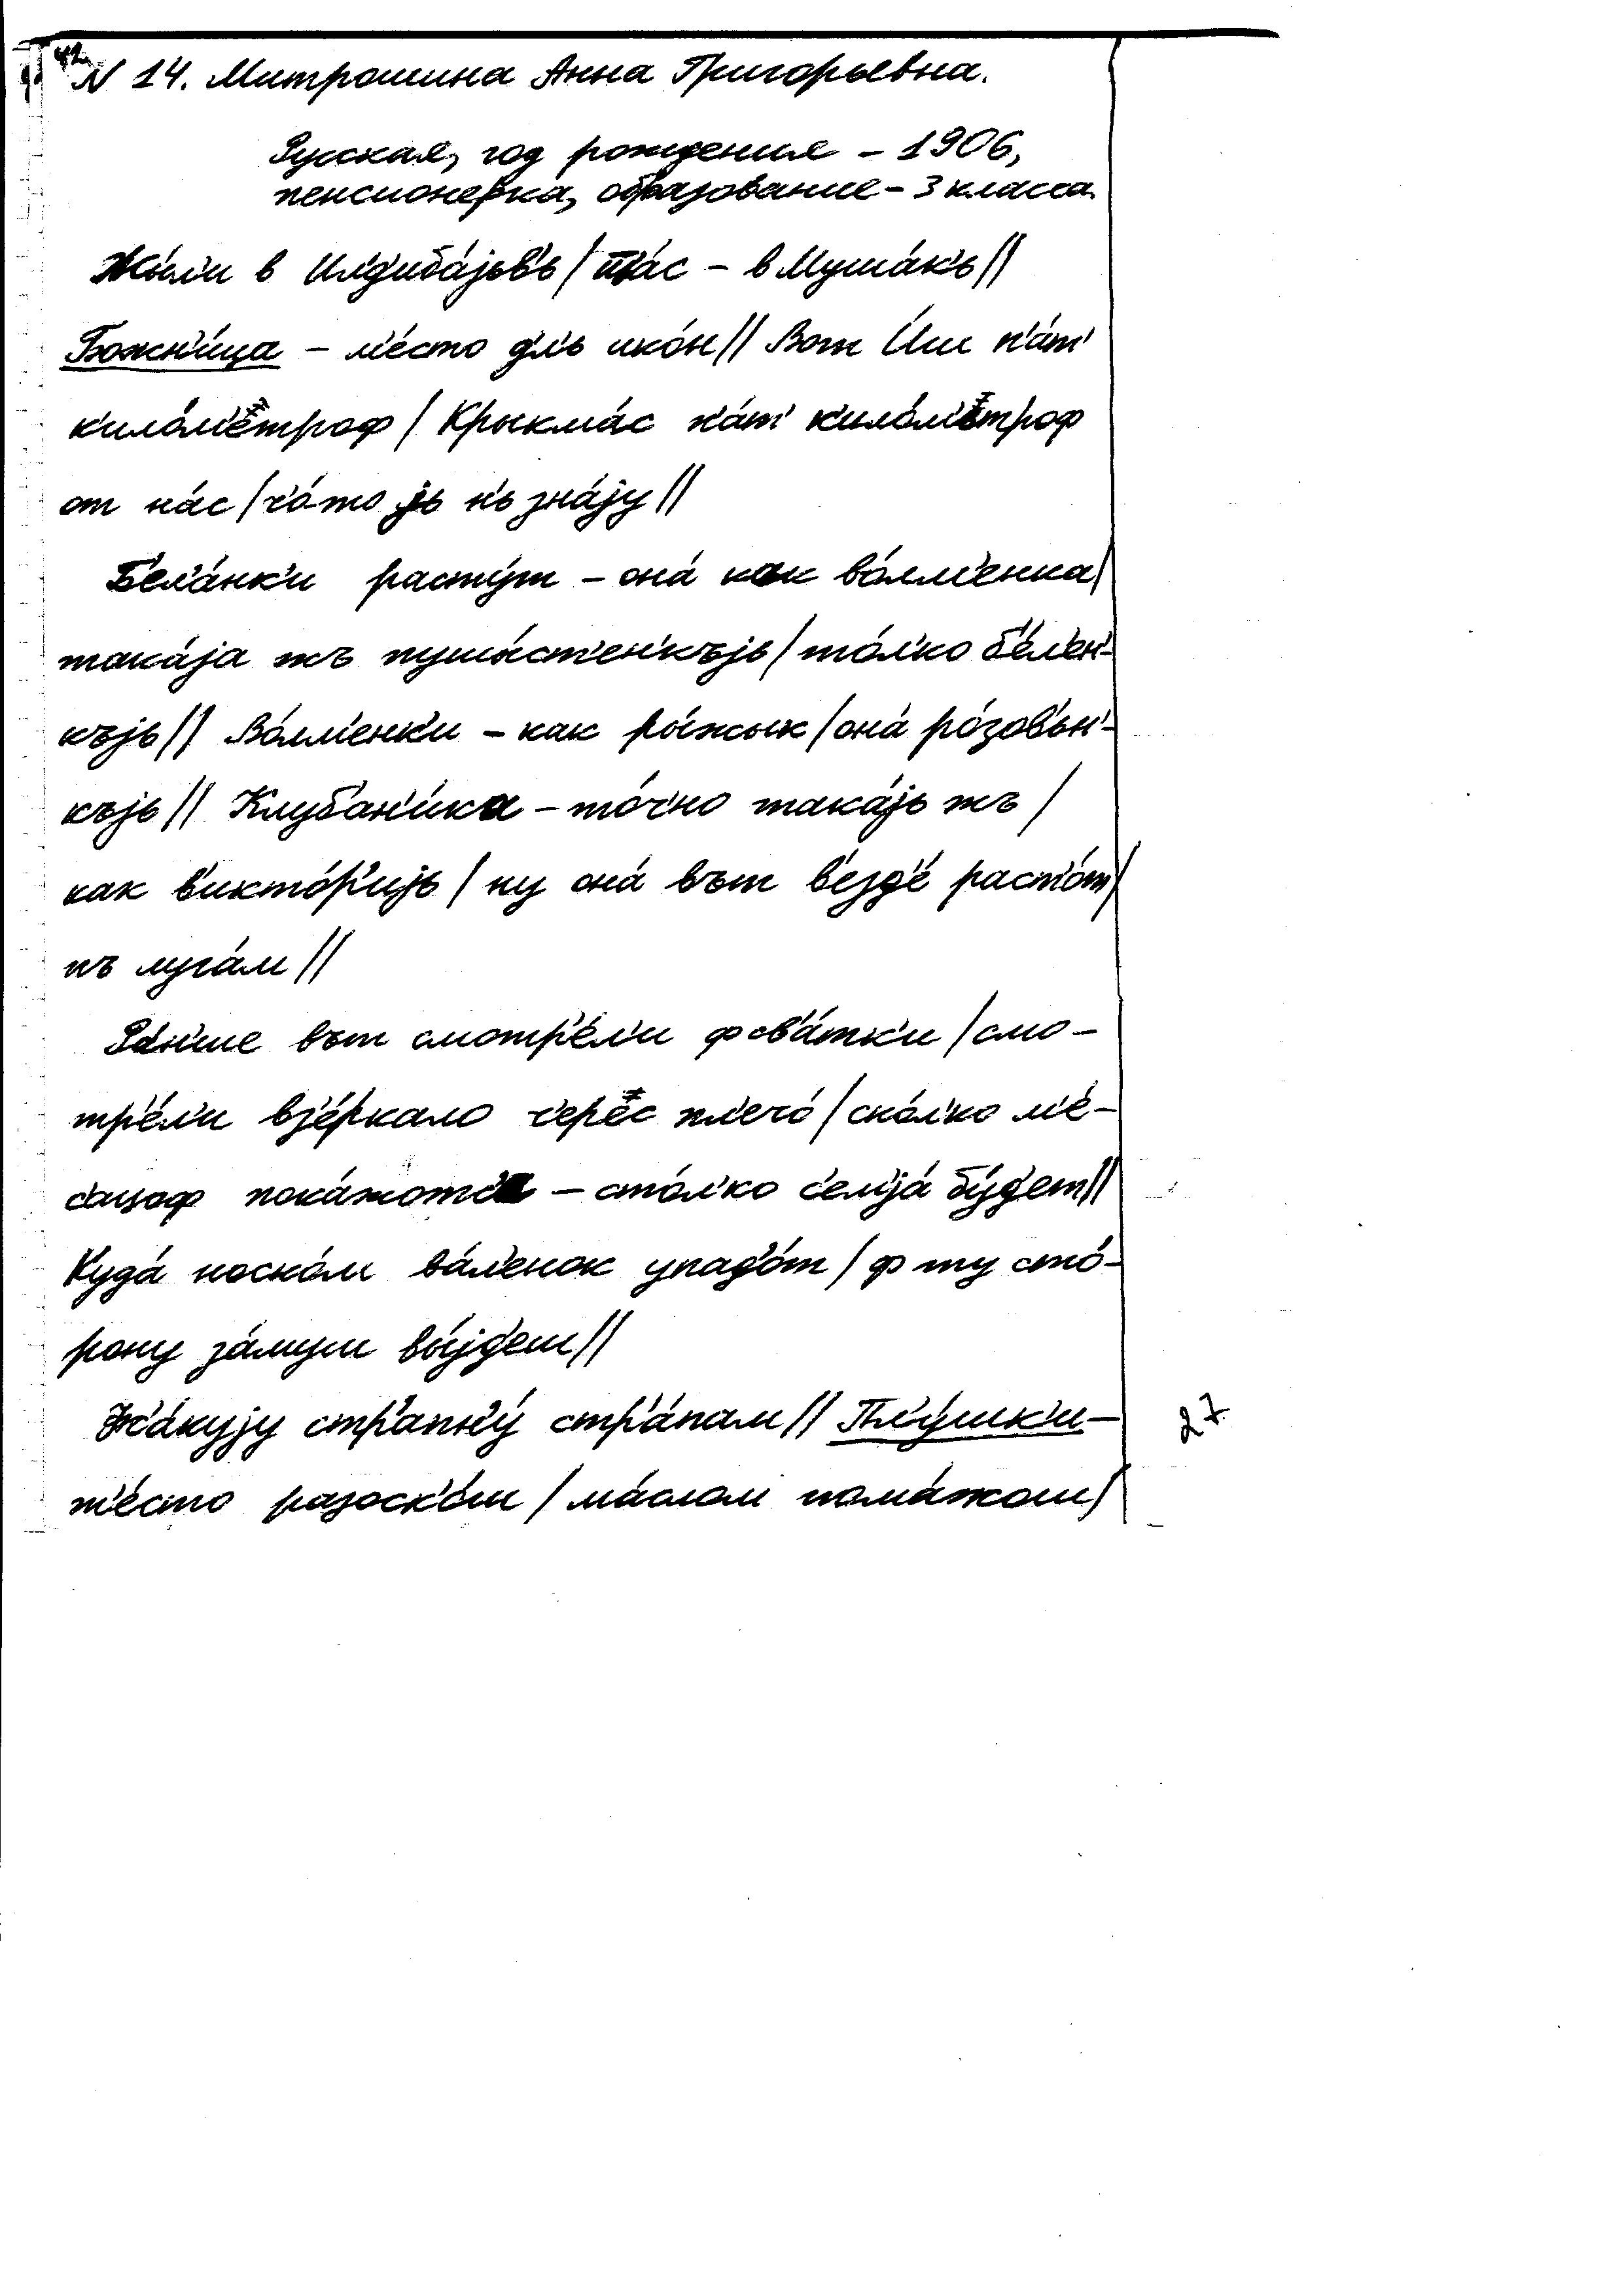 N 14. Митрошина Анна Григорьевна.
Русская, год рождения – 1906,
пенсионерка, образование – 3 класса.
Жы́л'и в Ил'д'иба́јьв'ь / ш'ас – в Муша́к'ь //
Божн'и́ца – м'е́сто дл'ь ико́н // Вот И́ш п'а́т'
к'ило́м'етроф / Крыкма́с п'а́т' к'ило́м'етроф
от на́с / ч'о́ то јь н'ь зна́ју //
Б'ел'а́нк'и расту́т – она́ как во́лм'енка /
така́ја жъ пушы́ст'ен'къјь / то́л'ко б'е́л'ен'-
къјь // Во́лм'енк'и – как ры́жык / она́ ро́зов'ьн'-
къјь // Клубан'и́ка – то́ч'но така́јь жъ /
как в'икто́р'ијь / ну она́ вът в'езд'е́ раст'о́т /
пъ луга́м //
Ра́н'ше вът смотр'е́л'и ф св'а́тк'и / смо-
тр'е́л'и в з'е́ркало ч'ер'ес пл'еч'о́ / ско́л'ко м'е́-
с'ацоф пока́жотс'а – сто́л'ко с'ем'ја́ бу́д'ет //
Куда́ носко́м ва́л'енок упад'о́т / ф ту сто́-
рону за́муш вы́јд'еш //
Вс'а́кују стр'апн'у́ стр'а́пам // Пл'у́шк'и –
т'е́сто разоск'о́ш / ма́слом пома́жош /
27